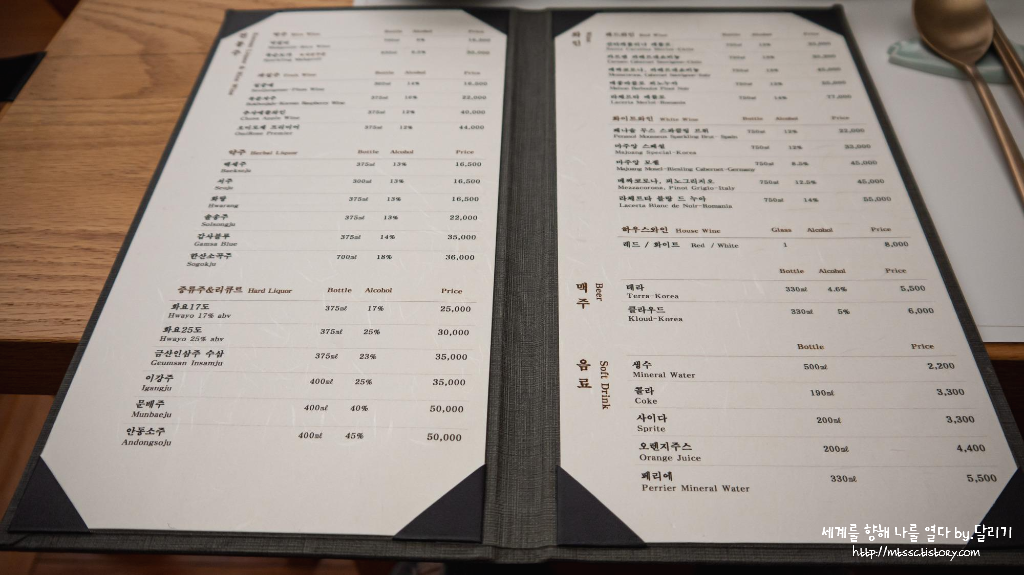 Bottle Alcohol Price
16,500
22,000
40,000
375㎖ 12% 44,000
약주 Herbal Liquor Bottle Alcohol Price
백세주 375㎖ 13% 16,500
Baekseju
300㎖ 13% 16,500
Seoju
화랑 375㎖ 13% 16,500
Hwarang
솔송주 375㎖ 13% 22,000
Solsongju
감사블루 375㎖ 14% 35,000
Gamsa Blue
한산소곡주 700㎖ 18% 36,000
Sogokju
증류주&리큐르 Hard Liquor Bottle Alcohol Price
화요17도 375㎖ 17% 25,000
Hwayo 17% abv
화요25도 375㎖ 25% 30,000
Hwayo 25% abv
금산인삼주 수삼 375㎖ 23% 35,000
Geumsan Insamju
이강주 400㎖ 25% 35,000
Igangju
문배주 400㎖ 40% 50,000
Munbaeju
안동소주 400㎖ 45% 50,000
Andongsoju
와인 Wine
레드와인 Red Wine Bottle Alcohol Price
라체르타 메를로 750㎖ 14% 77,000
Lacerta Merlot-Romania
화이트와인 White Wine Bottle Alcohol Price
750㎖ 12% 33,000
마주앙 스페셜 750㎖ 12%
Majuang Special-Korea
마주앙 모젤 750㎖ 8.5% 45,000
Majuang Mosel-Riesling Cabernet-Germany
메짜코로나, 피노그리지오 750㎖ 12.5% 45,000
Mezzacorona, Pinot Grigio-Italy
라체르타 블랑 드 누아 750㎖ 14% 55,000
Lacerta Blanc de Noir-Romania
하우스와인 House Wine Glass Alcohol Price
레드 / 화이트 Red / White 1 8,000
맥주 Beer
Bottle Alcohol Price
테라 330㎖ 4.6% 5,500
Terra-Korea
클라우드 330㎖ 5% 6,000
Kloud-Korea
음료 Soft Drink
Bottle Price
생수 500㎖ 2,200
Mineral Water
콜라 190㎖ 3,300
Coke
사이다 200㎖ 3,300
Sprite
오렌지주스 200㎖ 4,400
Orange Juice
페리에 330㎖ 5,500
Perrier Mineral Water
세계를 향해 나를 열다 by.달리기
http://mtssc.tistory.com